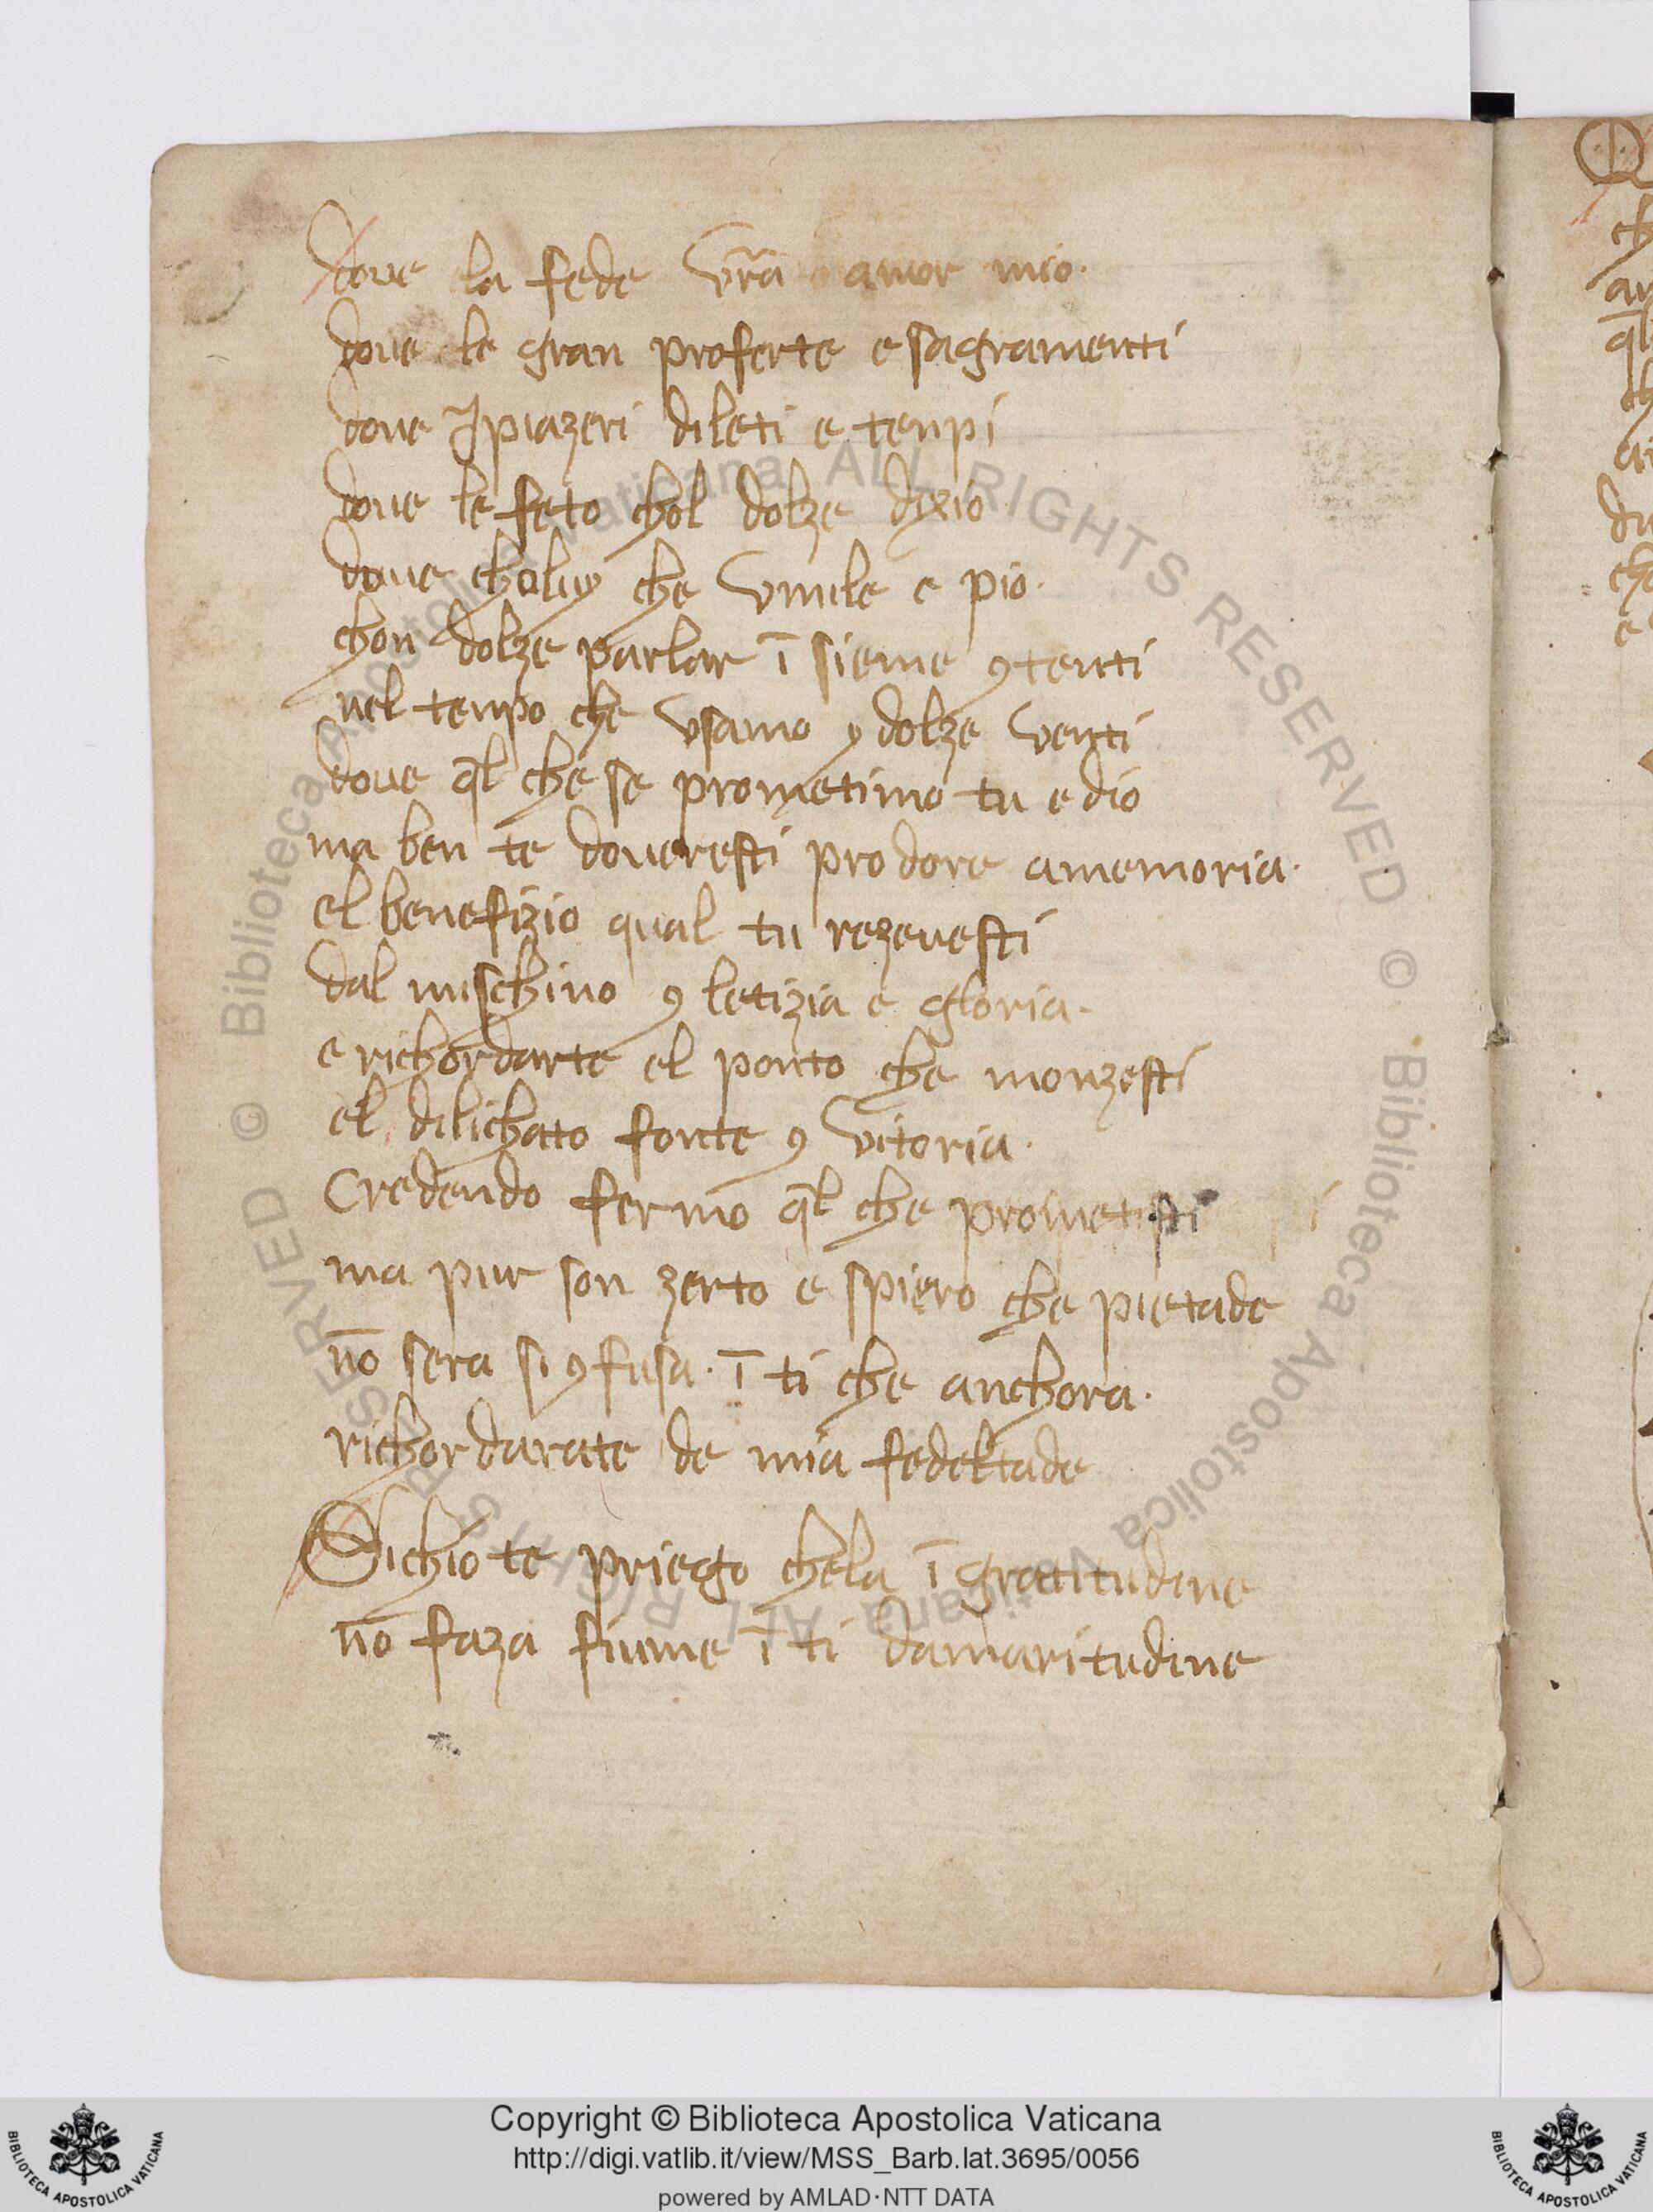 doue la fede vr̃a amor mio·
doue le gran proferte e sagramenti
doue Jpiazeri dileti e tenpi
doue le feto chol dolze dixio
doue choluy che vmile e pio·
chon dolze parlar ī sieme ꝯtenti
nel tenpo che vsamo ꝯ dolze venti
doue q̄l che se prometimo tu e dio
ma ben te doueresti pro dore amemoria·
el benefizio qual tu rezeuesti
dal mischino ꝯ letizia e gloria·
e richordarte el ponto che monzesti
el dilichato fonte ꝯ vitoria·
Credendo fermo q̄l che prometisti
ma pur son zerto e spiero che pietade
nō sera si ꝯfusa· ī ti che anchora·
richordarate de mia fedeltade
Sichio te priego chela ī gratitudine
nō faza fiume ī ti damaritudine
Copyright © Biblioteca Apostolica Vaticana
http://digi.vatlib.it/view/MSS_Barb.lat.3695/0056
powered by AMLAD·NTT DATA
BIBLIOTECA APOSTOLICA VATICANA
BIBLIOTECA APOSTOLICA VATICANA
Biblioteca Apostolica Vaticana ALL RIGHTS RESERVED ©
Biblioteca Apostolica Vaticana ALL RIGHTS RESERVED ©